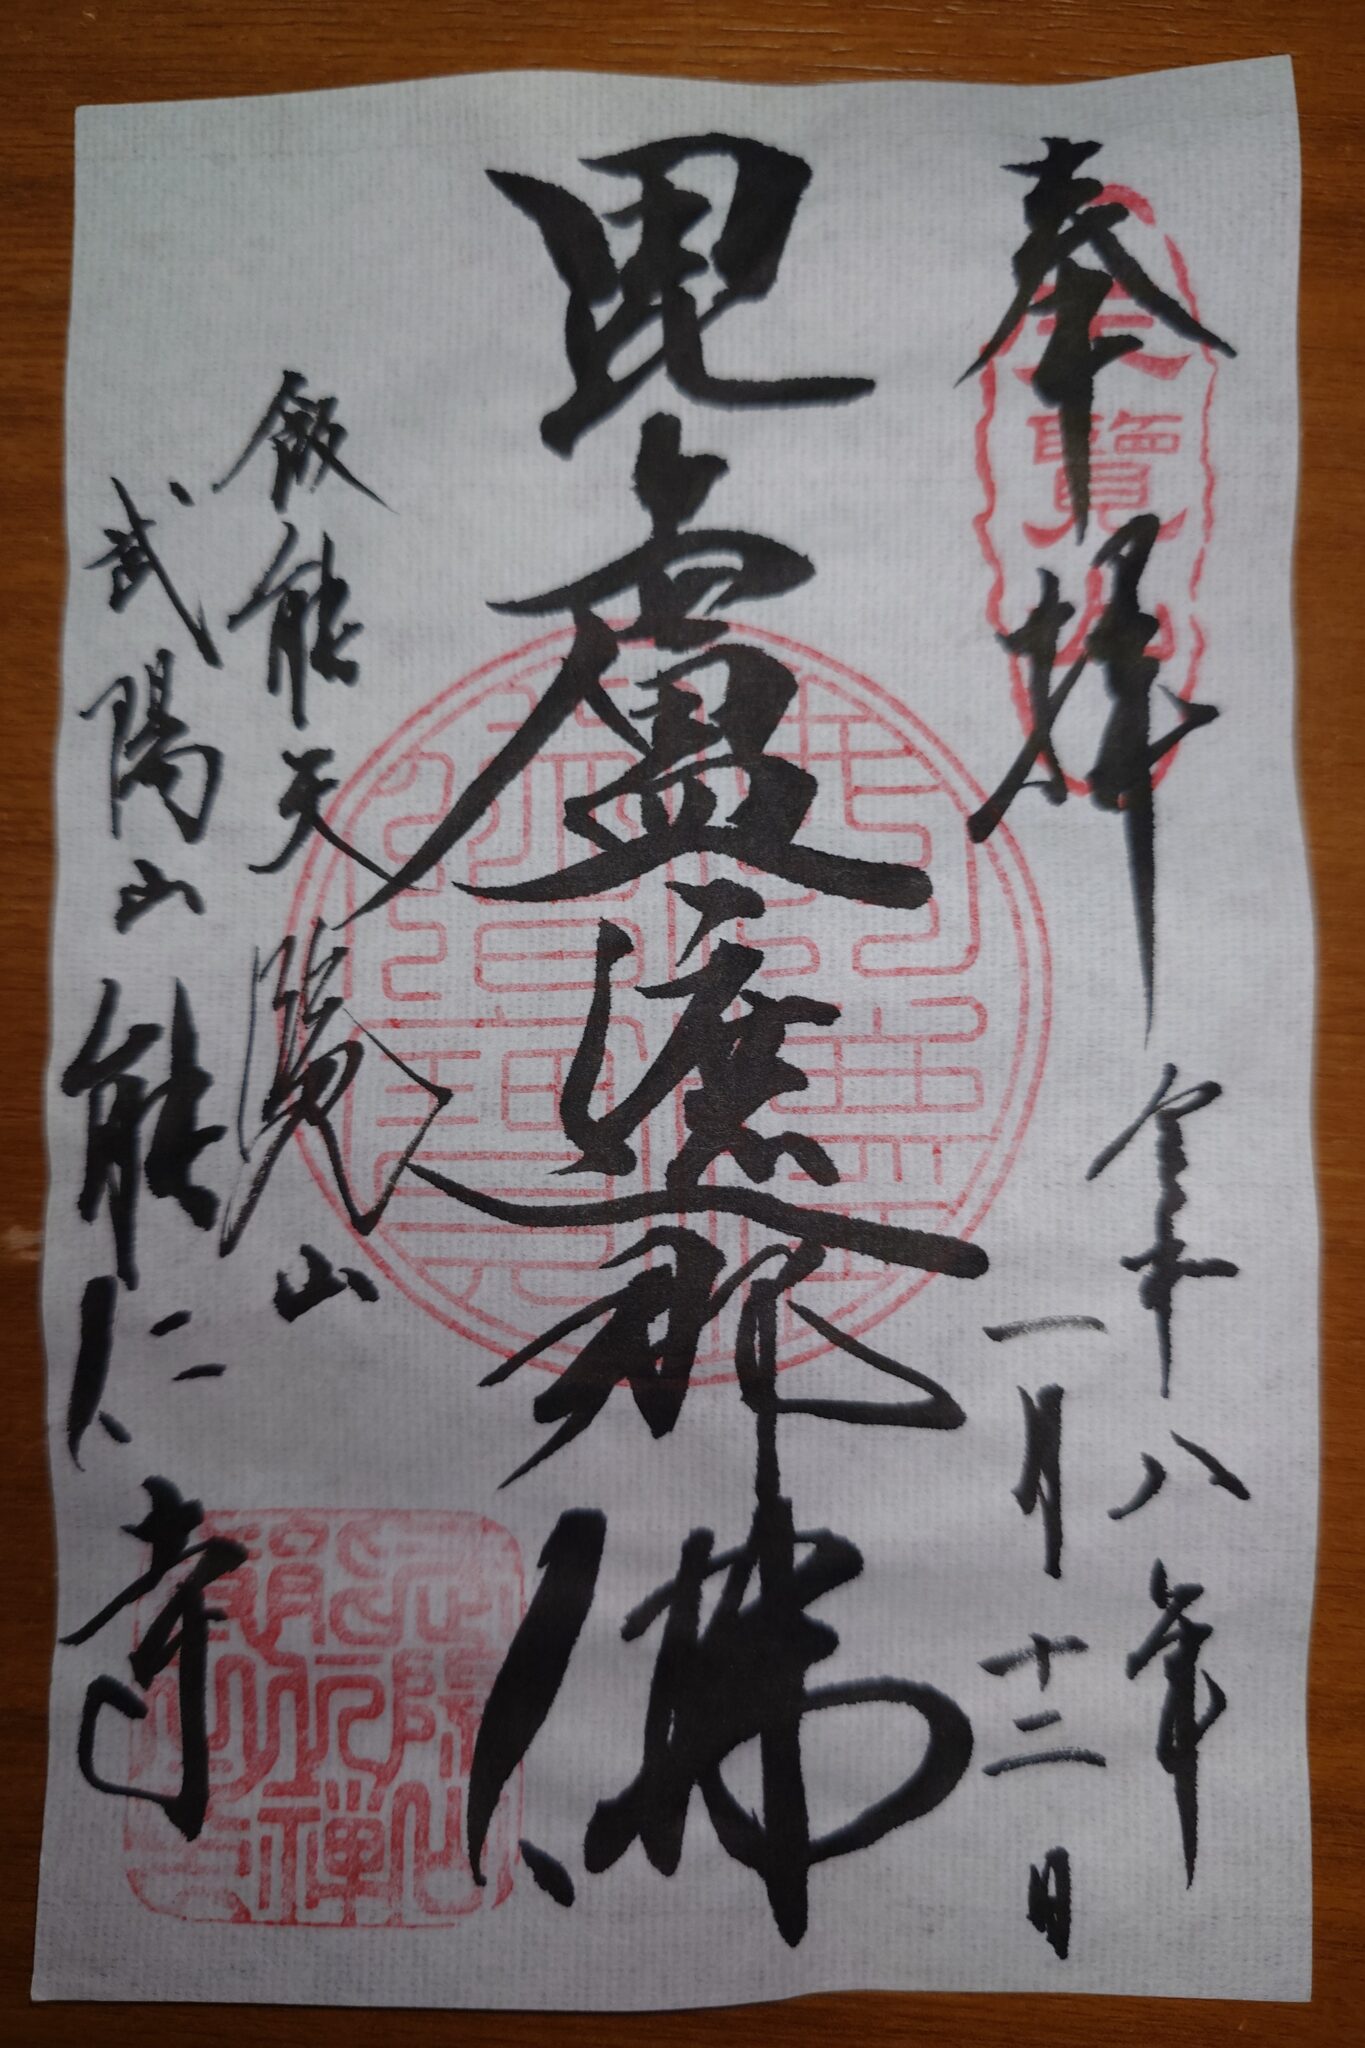 奉拝
天覧山
令和八年
一月十二日
毘盧遮那佛
飯能天覧山
武陽山能仁寺